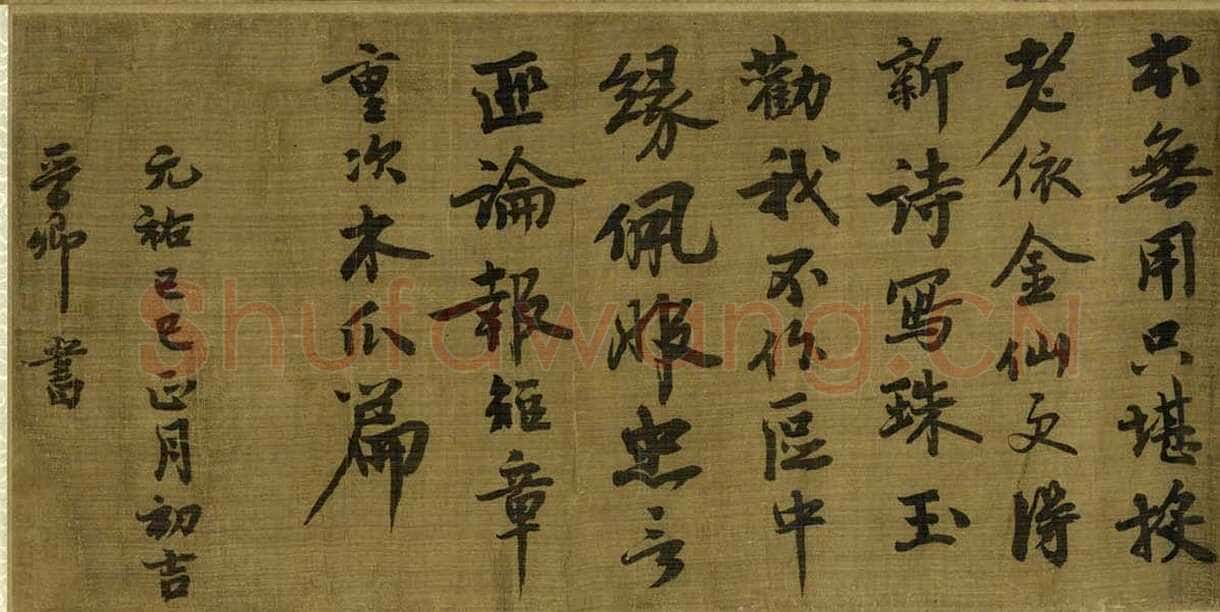 本無用只堪校
老依金仙更得
新詩写珠玉
勸我不作區中
緣佩服忠言
匪論報短章
重次木瓜篇
元祐己巳正月初吉
晋卿書
Shufawang.CN